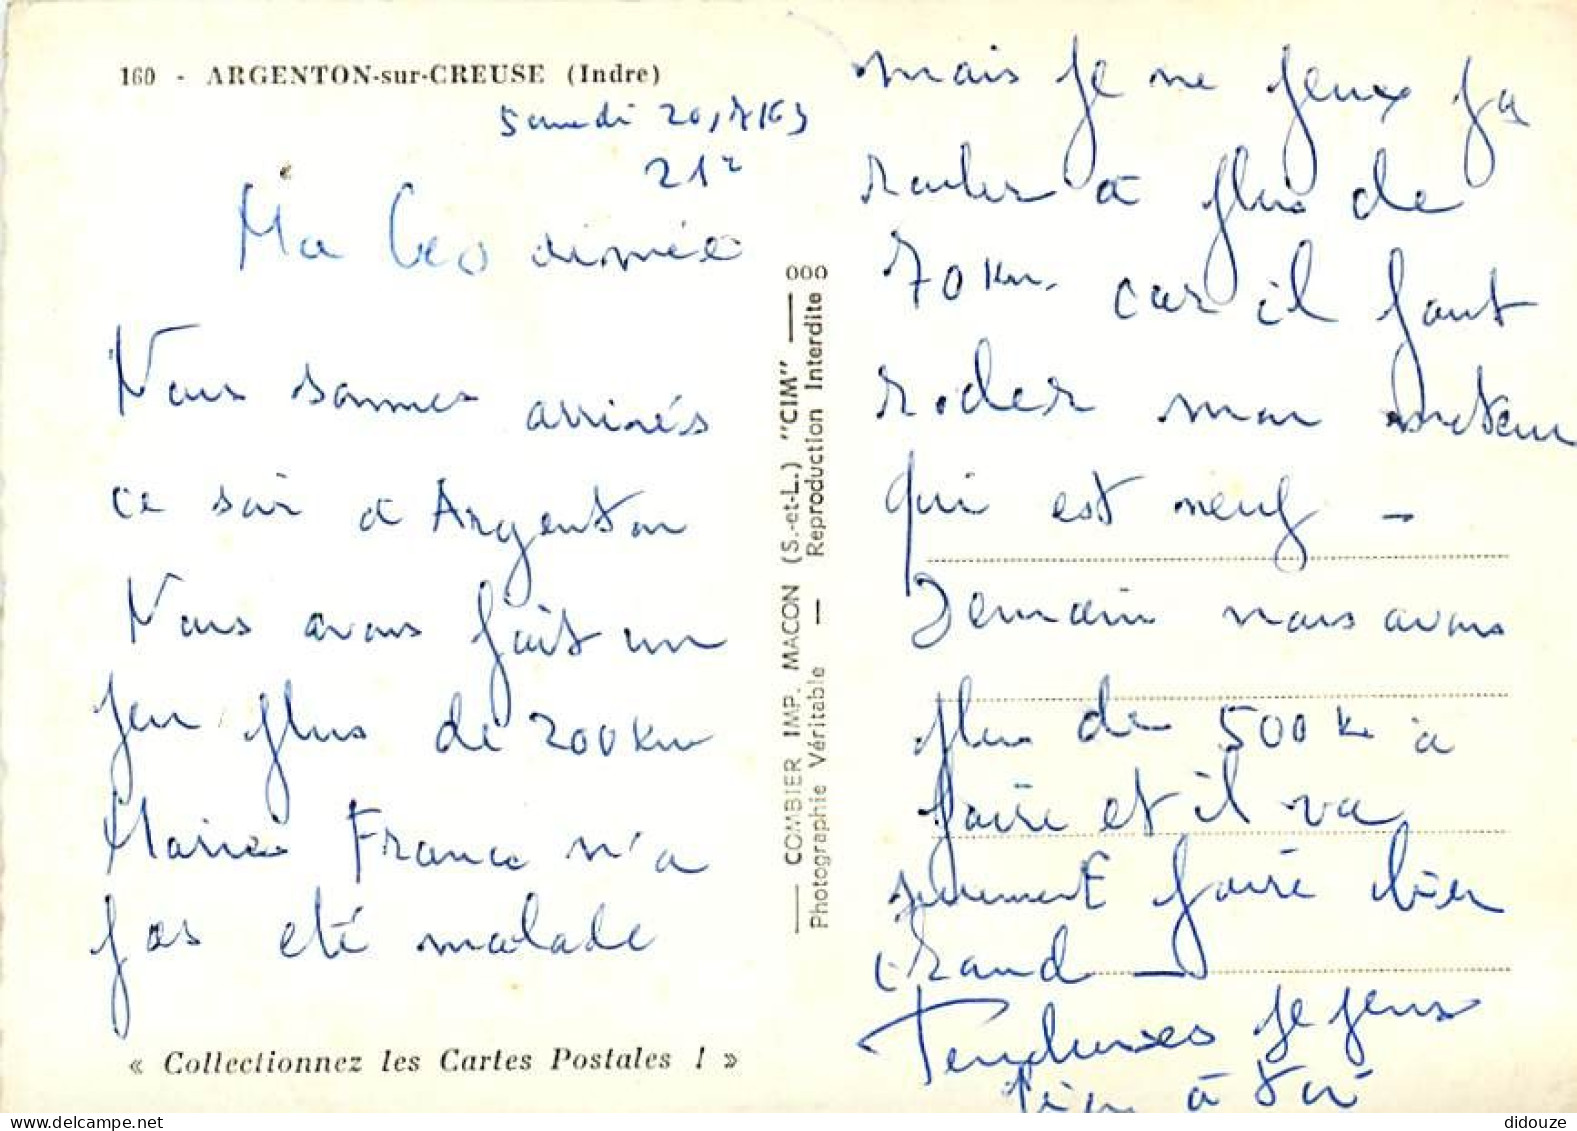 160 - ARGENTON-sur-CREUSE (Indre)
Samedi 20/7/63
21h
Ma Cleo aimée
Nous sommes arrivés
ce soir à Argenton
Nous avons fait un
peu plus de 200 km
Marie France n'a
pas été malade
« Collectionnez les Cartes Postales ! »
COMBIER IMP. MACON (S.-et-L.) "CIM"
Photographie Véritable — Reproduction Interdite
000
mais je ne peux pas
rouler à plus de
70 km. car il faut
roder mon moteur
qui est neuf -
Demain nous avons
plus de 500 km à
faire et il va
sûrement faire bien
chaud -
Tendresses je pense
bien à toi
didouze